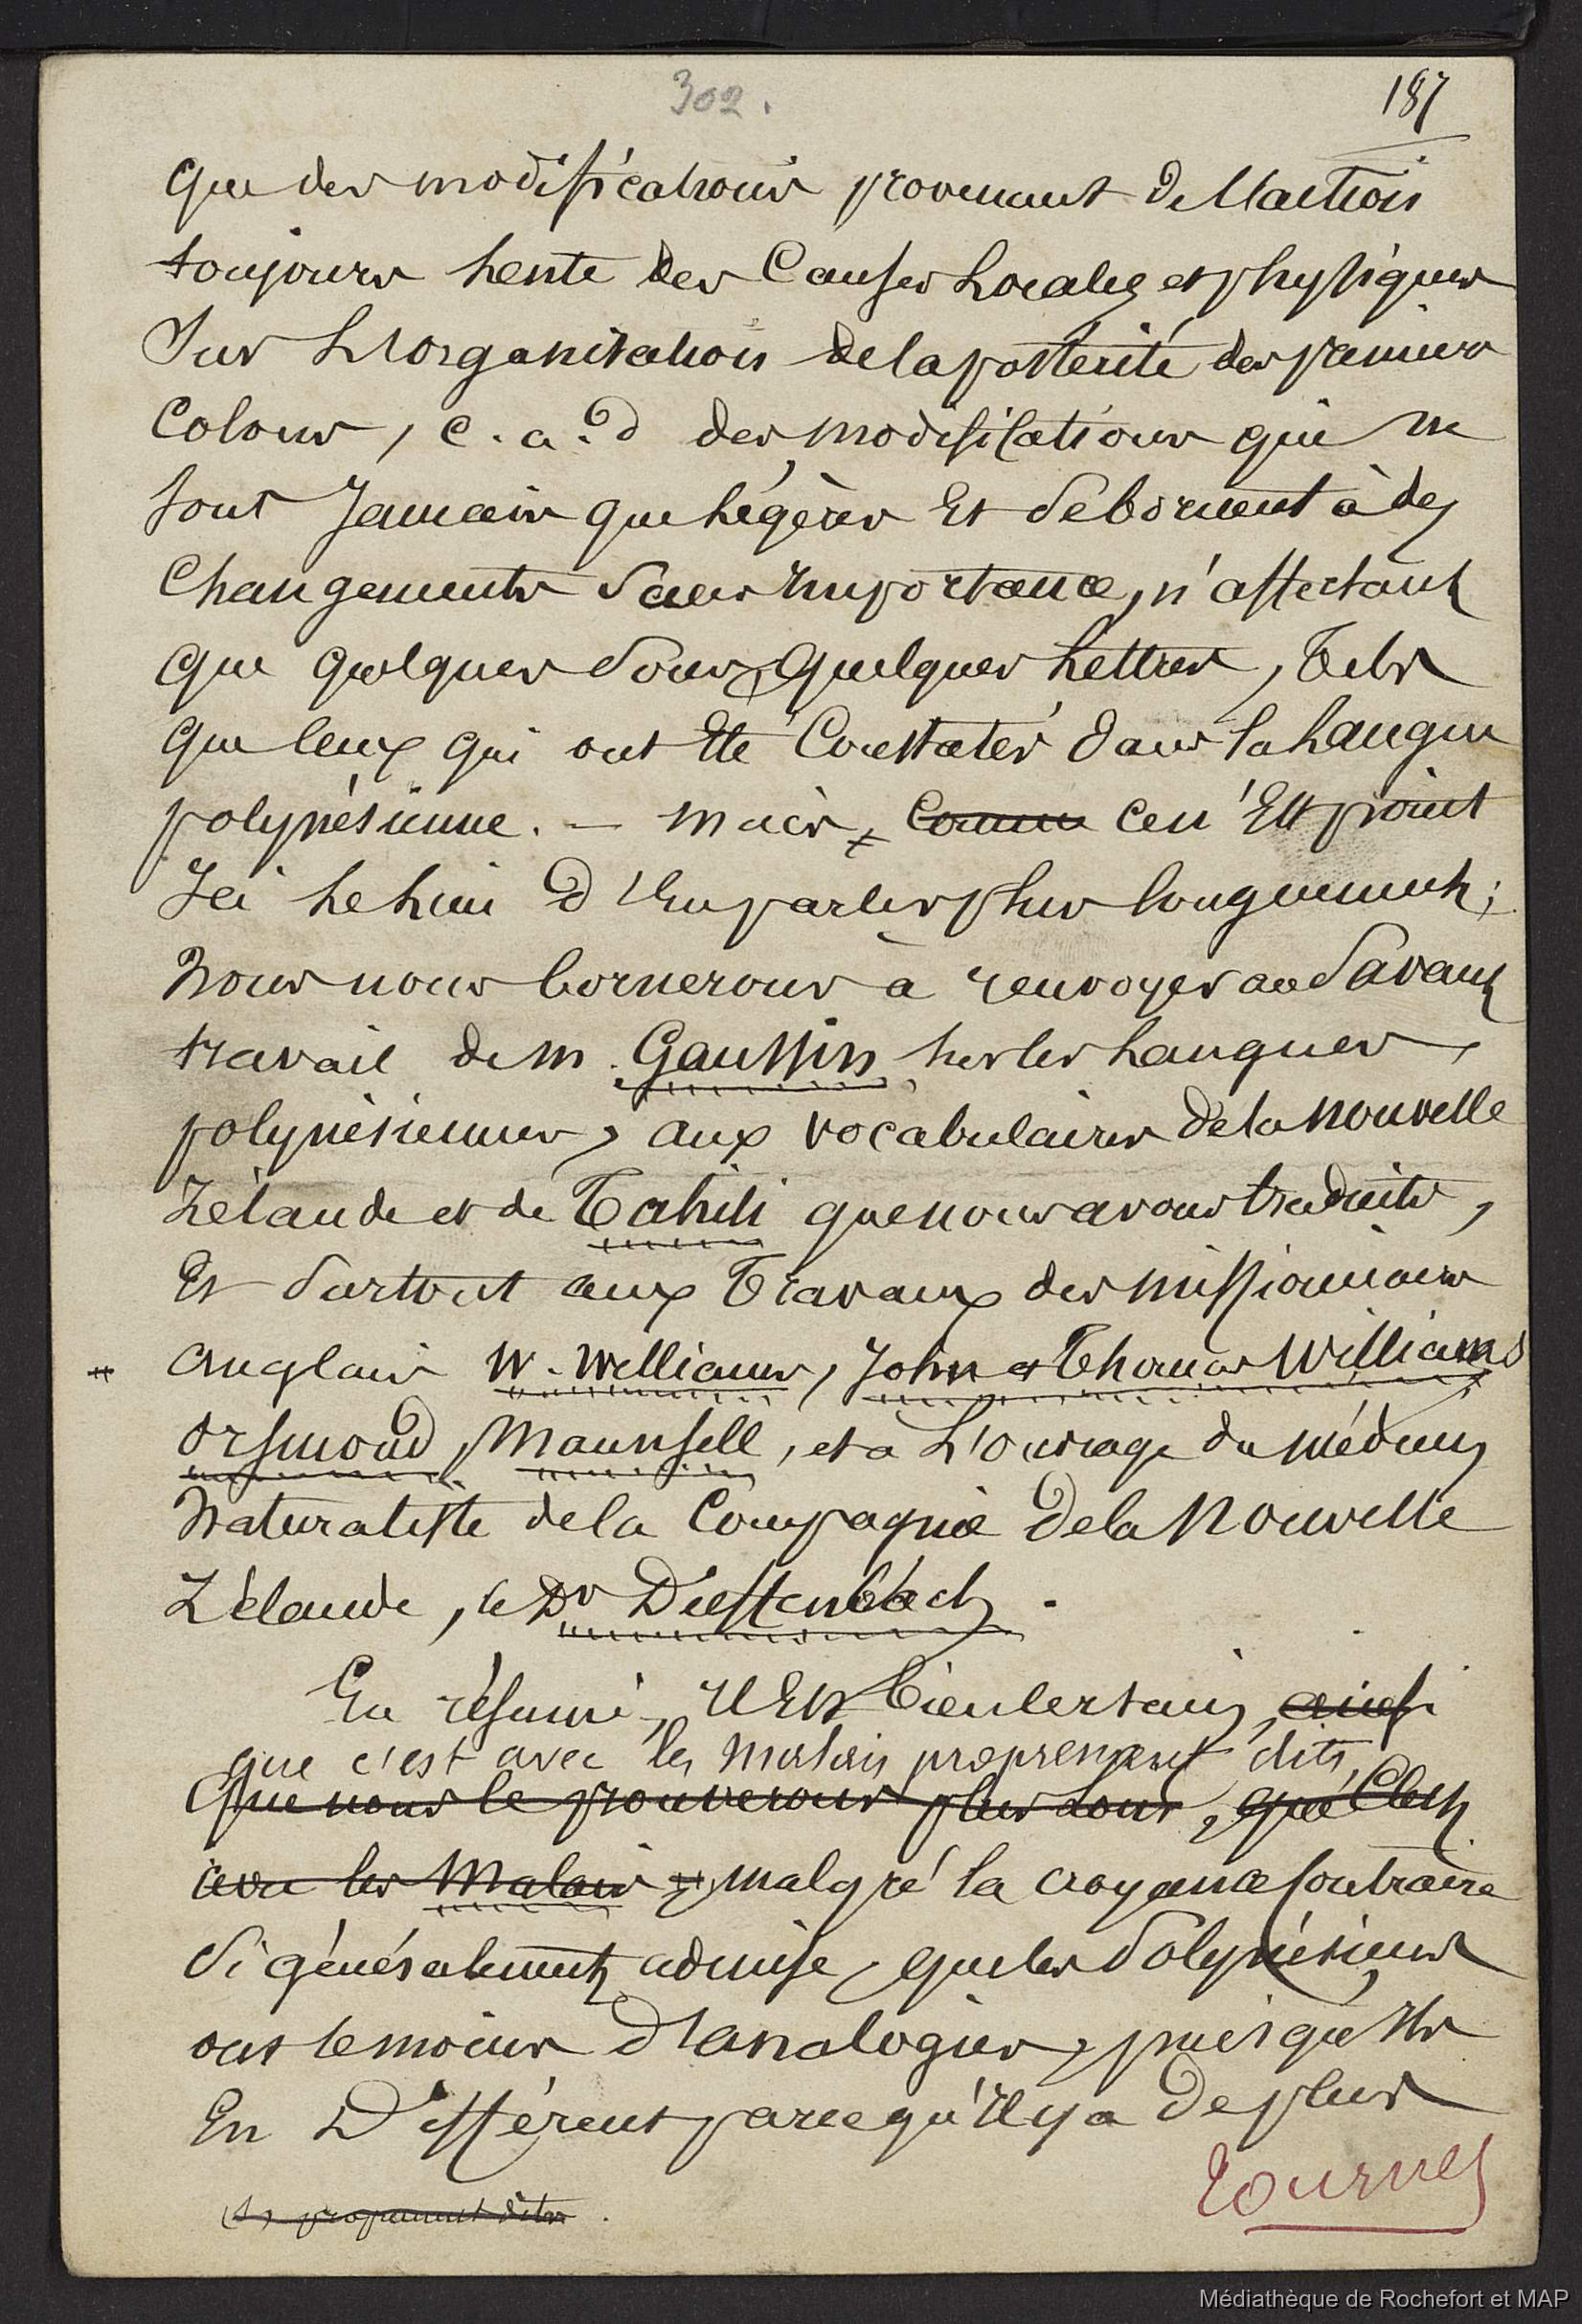 302.
187
que des modifications provenant de l'action
toujours lente des causes locales et physiques
sur l'organisation de la postérité des premiers
colons, c. a. d des modifications qui ne
sont jamais que légères et se bornent à des
changements sans importance, n'affectant
que quelques sons, quelques lettres, tels
que ceux qui ont été constatés dans la langue
polynésienne. — mais, comme ce n'est point
ici le lieu d'en parler plus longuement;
nous nous bornerons à renvoyer au savant
travail de m. Gaussin sur les langues
polynésiennes, aux vocabulaires de la nouvelle
Zélande et de Tahiti que nous avons traduits,
et surtout aux travaux des missionnaires
anglais W. Williams, John et Thomas Williams
Orsmond, Maunsell, et à l'ouvrage du médecin
naturaliste de la Compagnie de la Nouvelle
Zélande, le Dr Dieffenbach.
En résumé, il est bien certain, ainsi
que c'est avec les malais proprement dits,
que nous le prouverons plus loin, que c'est
avec les Malais malgré la croyance contraire
si généralement admise, que les Polynésiens
ont le moins d'analogies, puisqu'ils
en diffèrent parce qu'il y a de plus
tournez
(1) proprement dits.
Médiathèque de Rochefort et MAP